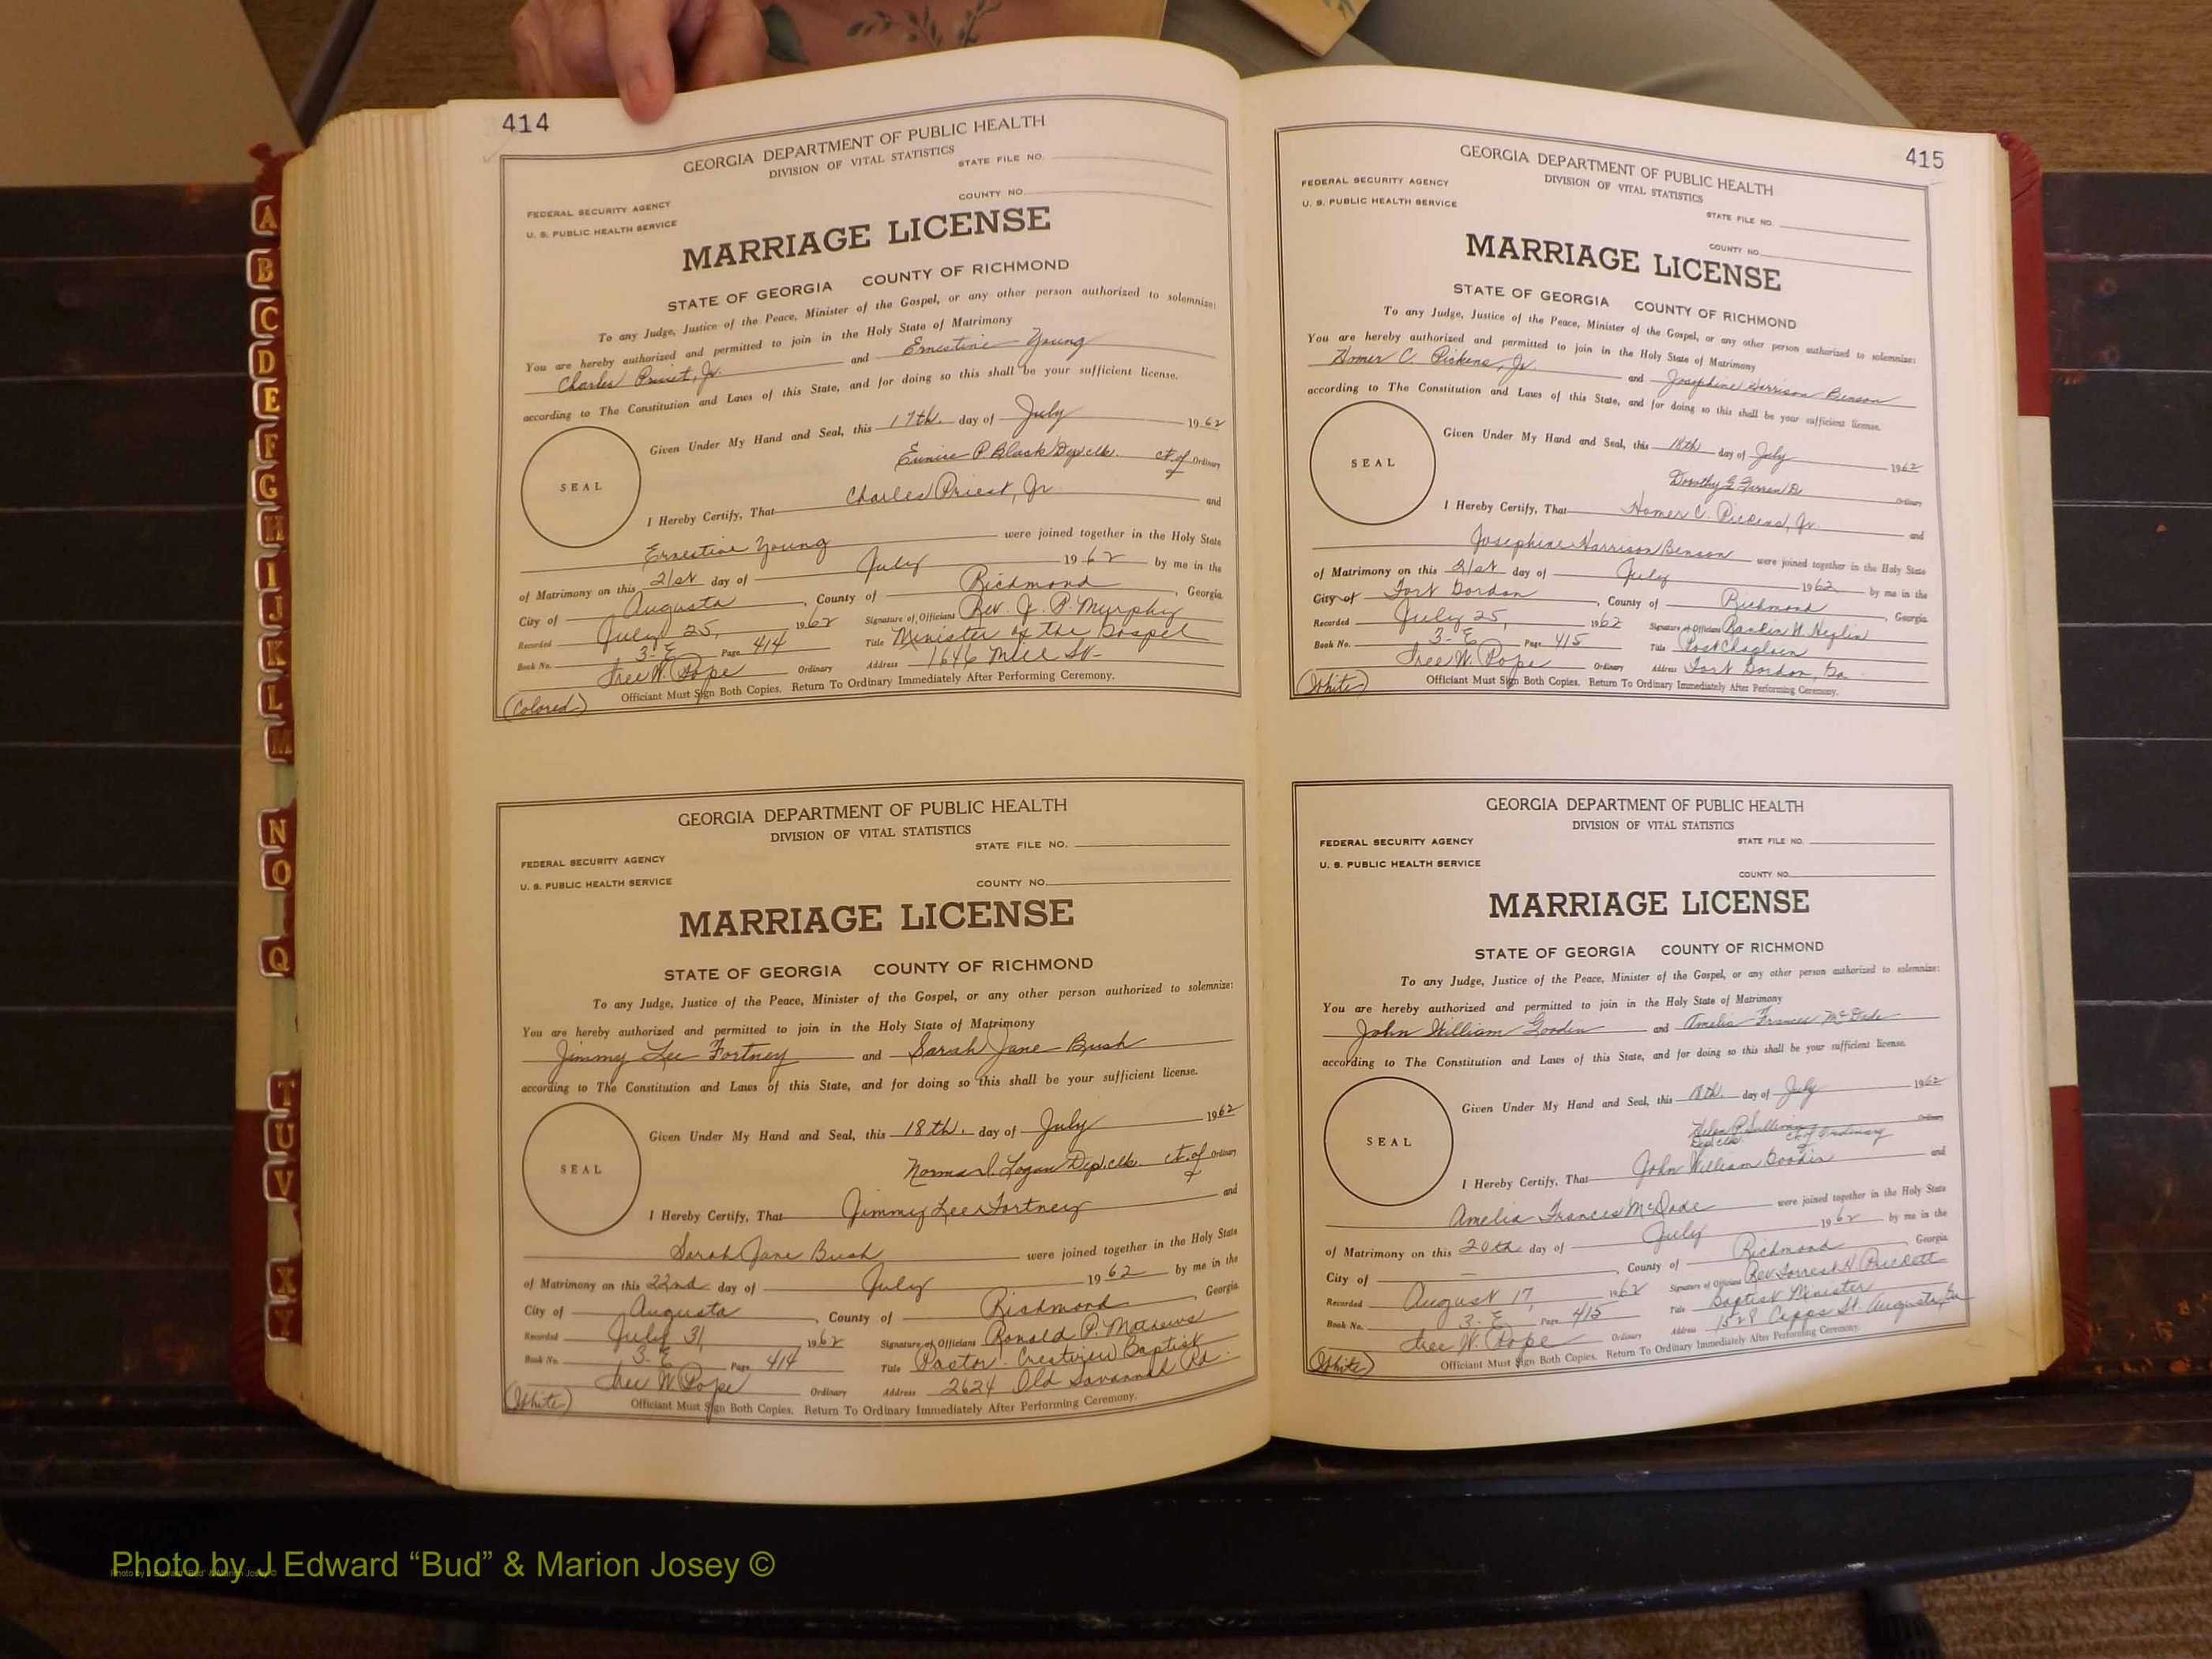 414
GEORGIA DEPARTMENT OF PUBLIC HEALTH
DIVISION OF VITAL STATISTICS
STATE FILE NO.
COUNTY NO.
FEDERAL SECURITY AGENCY
U. S. PUBLIC HEALTH SERVICE
MARRIAGE LICENSE
STATE OF GEORGIA COUNTY OF RICHMOND
To any Judge, Justice of the Peace, Minister of the Gospel, or any other person authorized to solemnize:
You are hereby authorized and permitted to join in the Holy State of Matrimony
Charles Priest, Jr. and Ernestine Young
according to The Constitution and Laws of this State, and for doing so this shall be your sufficient license.
Given Under My Hand and Seal, this 17th. day of July 1962
SEAL
Eunice P. Black Dep. clk. ct. of Ordinary
I Hereby Certify, That Charles Priest, Jr. and
Ernestine Young were joined together in the Holy State
of Matrimony on this 21st day of July 1962 by me in the
City of Augusta, County of Richmond, Georgia.
Recorded July 25, 1962 Signature of Officiant Rev. J. P. Murphy
Book No. 3-E Page 414 Title Minister of the Gospel
Tree W. Pope Ordinary Address 1646 Mill St-
(Colored) Officiant Must Sign Both Copies. Return To Ordinary Immediately After Performing Ceremony.
GEORGIA DEPARTMENT OF PUBLIC HEALTH
DIVISION OF VITAL STATISTICS
STATE FILE NO.
FEDERAL SECURITY AGENCY
U. S. PUBLIC HEALTH SERVICE
COUNTY NO.
MARRIAGE LICENSE
STATE OF GEORGIA COUNTY OF RICHMOND
To any Judge, Justice of the Peace, Minister of the Gospel, or any other person authorized to solemnize:
You are hereby authorized and permitted to join in the Holy State of Matrimony
Jimmy Lee Fortney and Sarah Jane Bush
according to The Constitution and Laws of this State, and for doing so this shall be your sufficient license.
Given Under My Hand and Seal, this 18th. day of July 1962
SEAL
Norma I. Logan Dep. clk. ct. of Ordinary
I Hereby Certify, That Jimmy Lee Fortney and
Sarah Jane Bush were joined together in the Holy State
of Matrimony on this 22nd day of July 1962 by me in the
City of Augusta, County of Richmond Georgia.
Recorded July 31, 1962 Signature of Officiant Ronald P. Mathews
Book No. 3-E Page 414 Title Pastor - Crestview Baptist
Tree W. Pope Ordinary Address 2624 Old Savannah Rd.
(White) Officiant Must Sign Both Copies. Return To Ordinary Immediately After Performing Ceremony.
415
GEORGIA DEPARTMENT OF PUBLIC HEALTH
DIVISION OF VITAL STATISTICS
FEDERAL SECURITY AGENCY
U. S. PUBLIC HEALTH SERVICE
STATE FILE NO.
COUNTY NO.
MARRIAGE LICENSE
STATE OF GEORGIA COUNTY OF RICHMOND
To any Judge, Justice of the Peace, Minister of the Gospel, or any other person authorized to solemnize:
You are hereby authorized and permitted to join in the Holy State of Matrimony
Homer C. Pickens, Jr. and Josephine Harrison Benson
according to The Constitution and Laws of this State, and for doing so this shall be your sufficient license.
Given Under My Hand and Seal, this 18th day of July 1962
SEAL
Dorothy Ordinary
I Hereby Certify, That Homer C. Pickens, Jr. and
Josephine Harrison Benson were joined together in the Holy State
of Matrimony on this 21st day of July 1962 by me in the
City of Fort Gordon, County of Richmond, Georgia.
Recorded July 25, 1962 Signature of Officiant
Book No. 3-E Page 415 Title Post Chaplain
Tree W. Pope Ordinary Address Fort Gordon, Ga.
(White) Officiant Must Sign Both Copies. Return To Ordinary Immediately After Performing Ceremony.
GEORGIA DEPARTMENT OF PUBLIC HEALTH
DIVISION OF VITAL STATISTICS
FEDERAL SECURITY AGENCY STATE FILE NO.
U. S. PUBLIC HEALTH SERVICE
COUNTY NO.
MARRIAGE LICENSE
STATE OF GEORGIA COUNTY OF RICHMOND
To any Judge, Justice of the Peace, Minister of the Gospel, or any other person authorized to solemnize:
You are hereby authorized and permitted to join in the Holy State of Matrimony
John William Goodin and Amelia Frances McDade
according to The Constitution and Laws of this State, and for doing so this shall be your sufficient license.
Given Under My Hand and Seal, this 18th. day of July 1962
SEAL
Helen P. Sullivan Ordinary
Dep. clk. ct. of Ordinary
I Hereby Certify, That John William Goodin and
Amelia Frances McDade were joined together in the Holy State
of Matrimony on this 20th day of July 1962 by me in the
City of —, County of Richmond Georgia.
Recorded August 17, 1962 Signature of Officiant Rev Forrest H. Puckett
Book No. 3-E Page 415 Title Baptist Minister
Tree W. Pope Ordinary Address 1528 Capps St. Augusta, Ga
(White) Officiant Must Sign Both Copies. Return To Ordinary Immediately After Performing Ceremony.
A
B
C
D
E
F
G
H
I
J
K
L
M
N
O
Q
T
U
V
X
Y
Photo by J Edward “Bud” & Marion Josey ©
Photo by J Edward “Bud” & Marion Josey ©